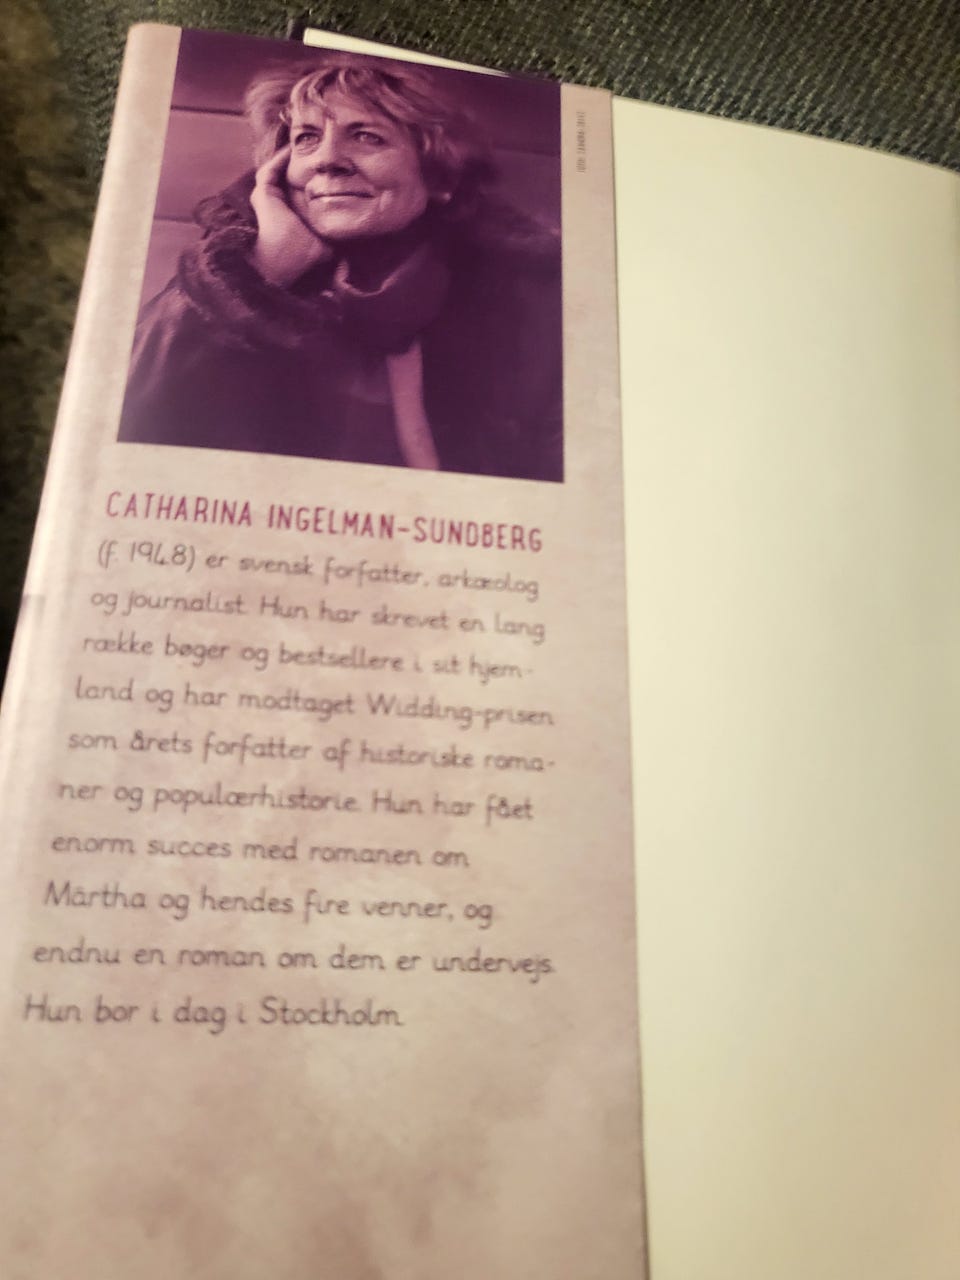 CATHARINA INGELMAN-SUNDBERG
(f. 1948) er svensk forfatter, arkæolog
og journalist. Hun har skrevet en lang
række bøger og bestsellere i sit hjem-
land og har modtaget Widding-prisen
som årets forfatter af historiske roma-
ner og populærhistorie. Hun har fået
enorm succes med romanen om
Märtha og hendes fire venner, og
endnu en roman om dem er undervejs.
Hun bor i dag i Stockholm.